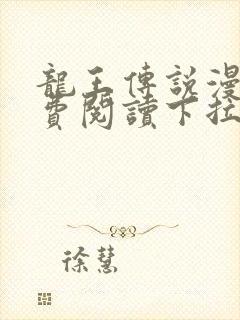 龍王傳說漫
費閱讀下拉
徐慧